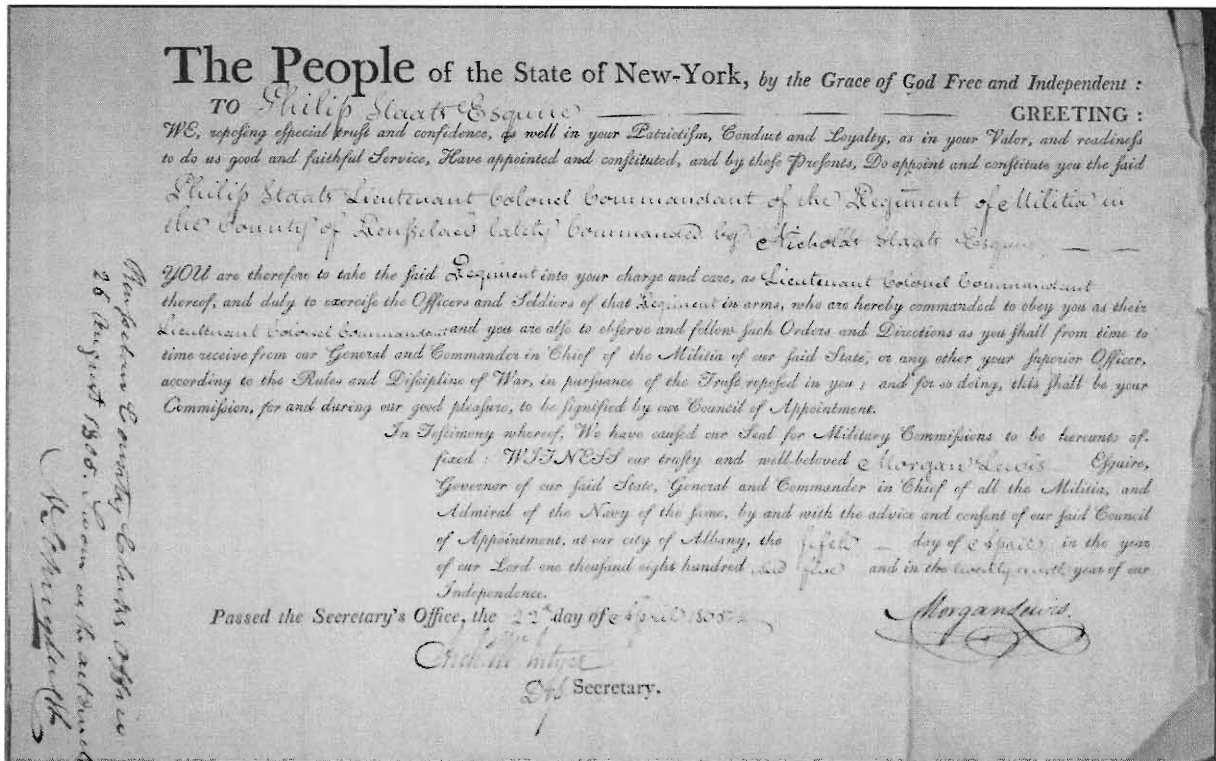 The People of the State of New-York, by the Grace of God Free and Independent :
TO Philip Staats Esquire — — — — GREETING :
WE, repoſing eſpecial truſt and confidence, as well in your Patriotiſm, Conduct and Loyalty, as in your Valor, and readineſs
to do us good and faithful Service, Have appointed and conſtituted, and by theſe Preſents, Do appoint and conſtitute you the ſaid
Philip Staats Lieutenant Colonel Commandant of the Regiment of Militia in
the County of Renſselaer lately Commanded by Nicholas Staats Esquire — —
YOU are therefore to take the ſaid Regiment into your charge and care, as Lieutenant Colonel Commandant
thereof, and duly to exerciſe the Officers and Soldiers of that Regiment in arms, who are hereby commanded to obey you as their
Lieutenant Colonel Commandant and you are alſo to obſerve and follow ſuch Orders and Directions as you ſhall from time to
time receive from our General and Commander in Chief of the Militia of our ſaid State, or any other your ſuperior Officer,
according to the Rules and Diſcipline of War, in purſuance of the Truſt repoſed in you ; and for so doing, this ſhall be your
Commiſsion, for and during our good pleaſure, to be ſignified by our Council of Appointment.
In Teſtimony whereof, We have cauſed our Seal for Military Commiſsions to be hereunto af-
fixed : WITNESS our truſty and well-beloved Morgan Lewis Eſquire,
Governor of our ſaid State, General and Commander in Chief of all the Militia, and
Admiral of the Navy of the ſame, by and with the advice and conſent of our ſaid Council
of Appointment, at our city of Albany, the fifth — day of April in the year
of our Lord one thouſand eight hundred and five and in the twenty ninth year of our
Independence.
Passed the Secretary's Office, the 22d day of April 1805
Morgan Lewis.
Archd McIntyre
Dep Secretary.
Rensselaer County Clerks Office
26 August 1805. Sworn on the